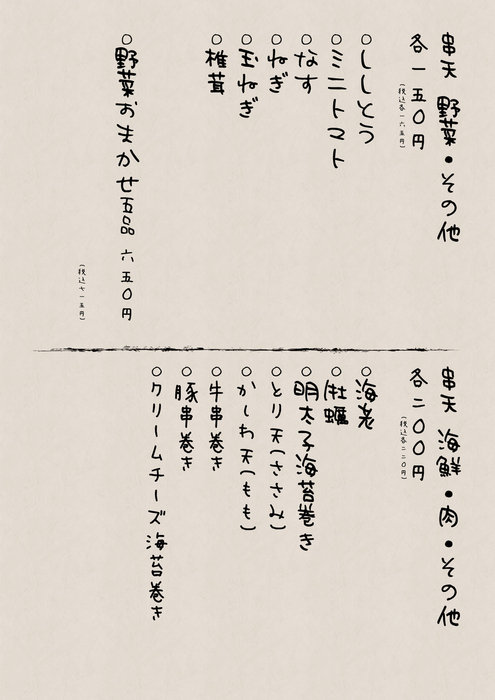 串天 野菜・その他
各一五〇円
（税込各一六五円）
○ししとう
○ミニトマト
○なす
○ねぎ
○玉ねぎ
○椎茸
○野菜おまかせ五品 六五〇円
（税込七一五円）
串天 海鮮・肉・その他
各二〇〇円
（税込各二二〇円）
○海老
○牡蠣
○明太子海苔巻き
○とり天（ささみ）
○かしわ天（もも）
○牛串巻き
○豚串巻き
○クリームチーズ海苔巻き